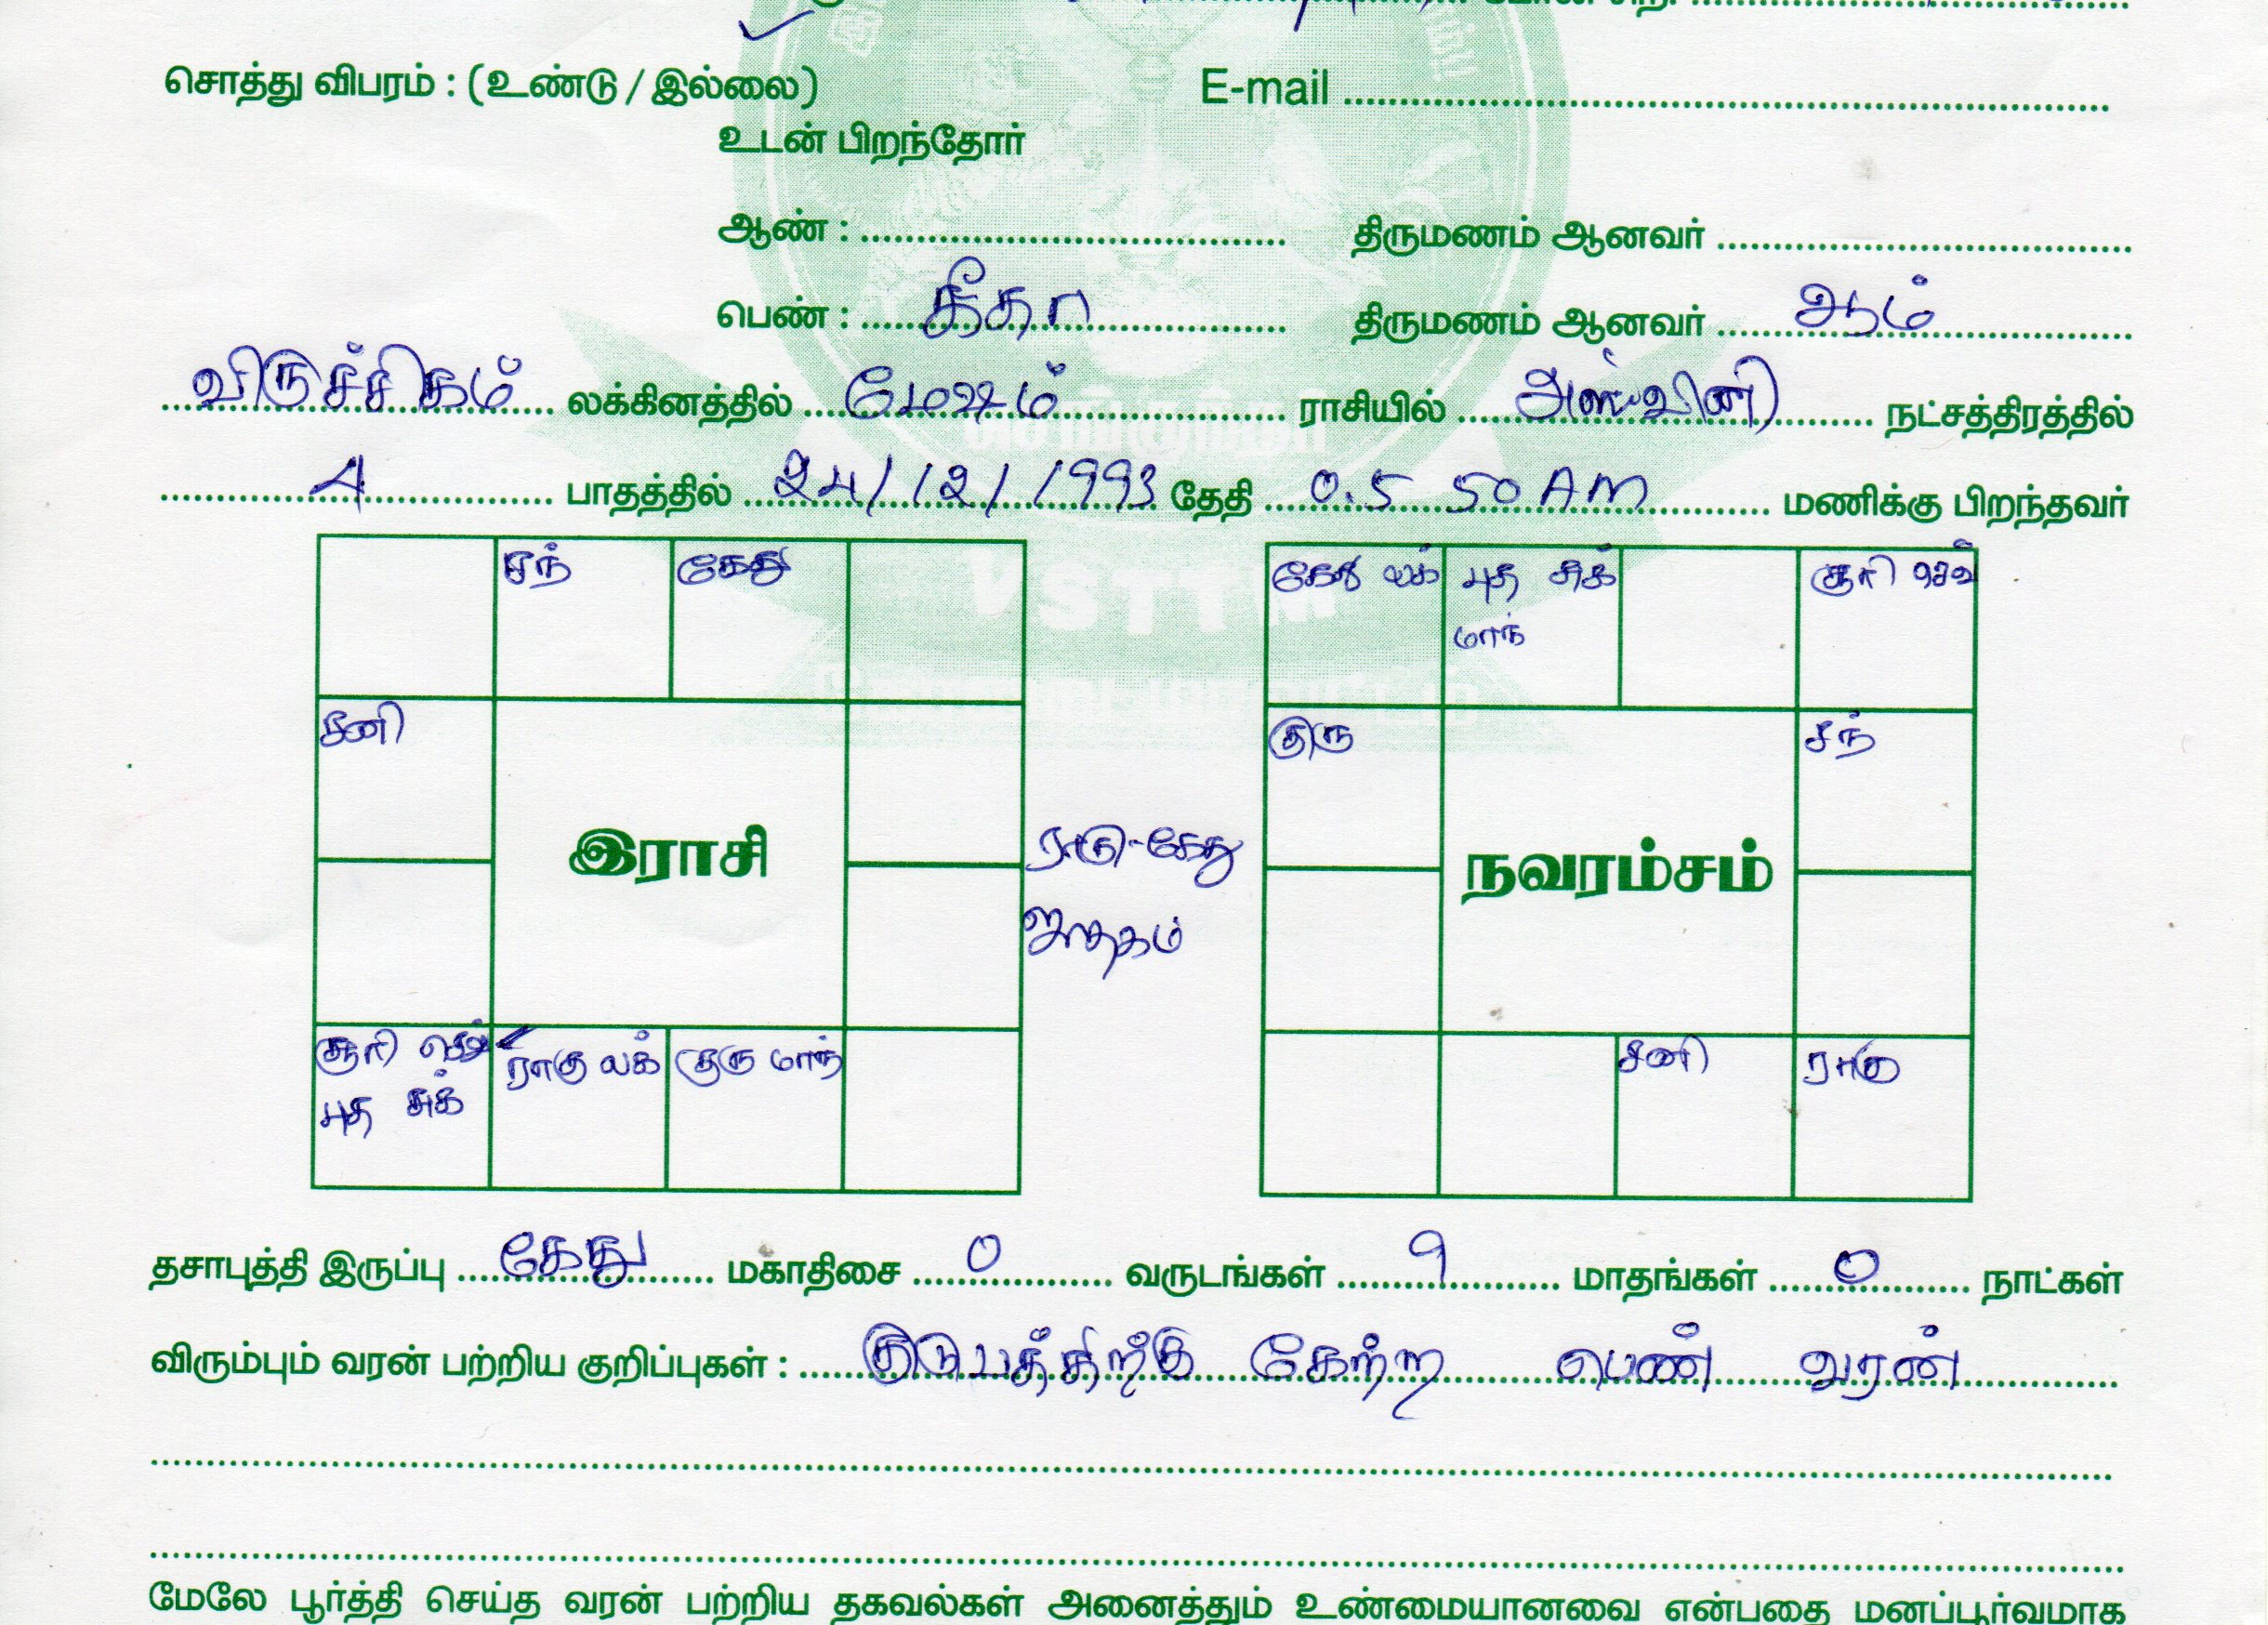 சொத்து விபரம் : (உண்டு / இல்லை) E-mail
உடன் பிறந்தோர்
ஆண் : திருமணம் ஆனவர்
பெண் : கீதா திருமணம் ஆனவர் ஆம்
விருச்சிகம் லக்கினத்தில் மேஷம் ராசியில் அஸ்வினி நட்சத்திரத்தில்
4 பாதத்தில் 24/12/1993 தேதி 0.5 50 AM மணிக்கு பிறந்தவர்
சந் கேது
சனி
இராசி
சூரி செவ் ராகு லக் குரு மாந்
புத சுக்
ராகு-கேது
ஜாதகம்
கேது லக் புத சுக் சூரி செவ்
மாந்
குரு சந்
நவரம்சம்
சனி ராகு
VSTTM
தசாபுத்தி இருப்பு கேது மகாதிசை 0 வருடங்கள் 9 மாதங்கள் 0 நாட்கள்
விரும்பும் வரன் பற்றிய குறிப்புகள் : கேற்ற பெண் வரன்
மேலே பூர்த்தி செய்த வரன் பற்றிய தகவல்கள் அனைத்தும் உண்மையானவை என்பதை மனப்பூர்வமாக